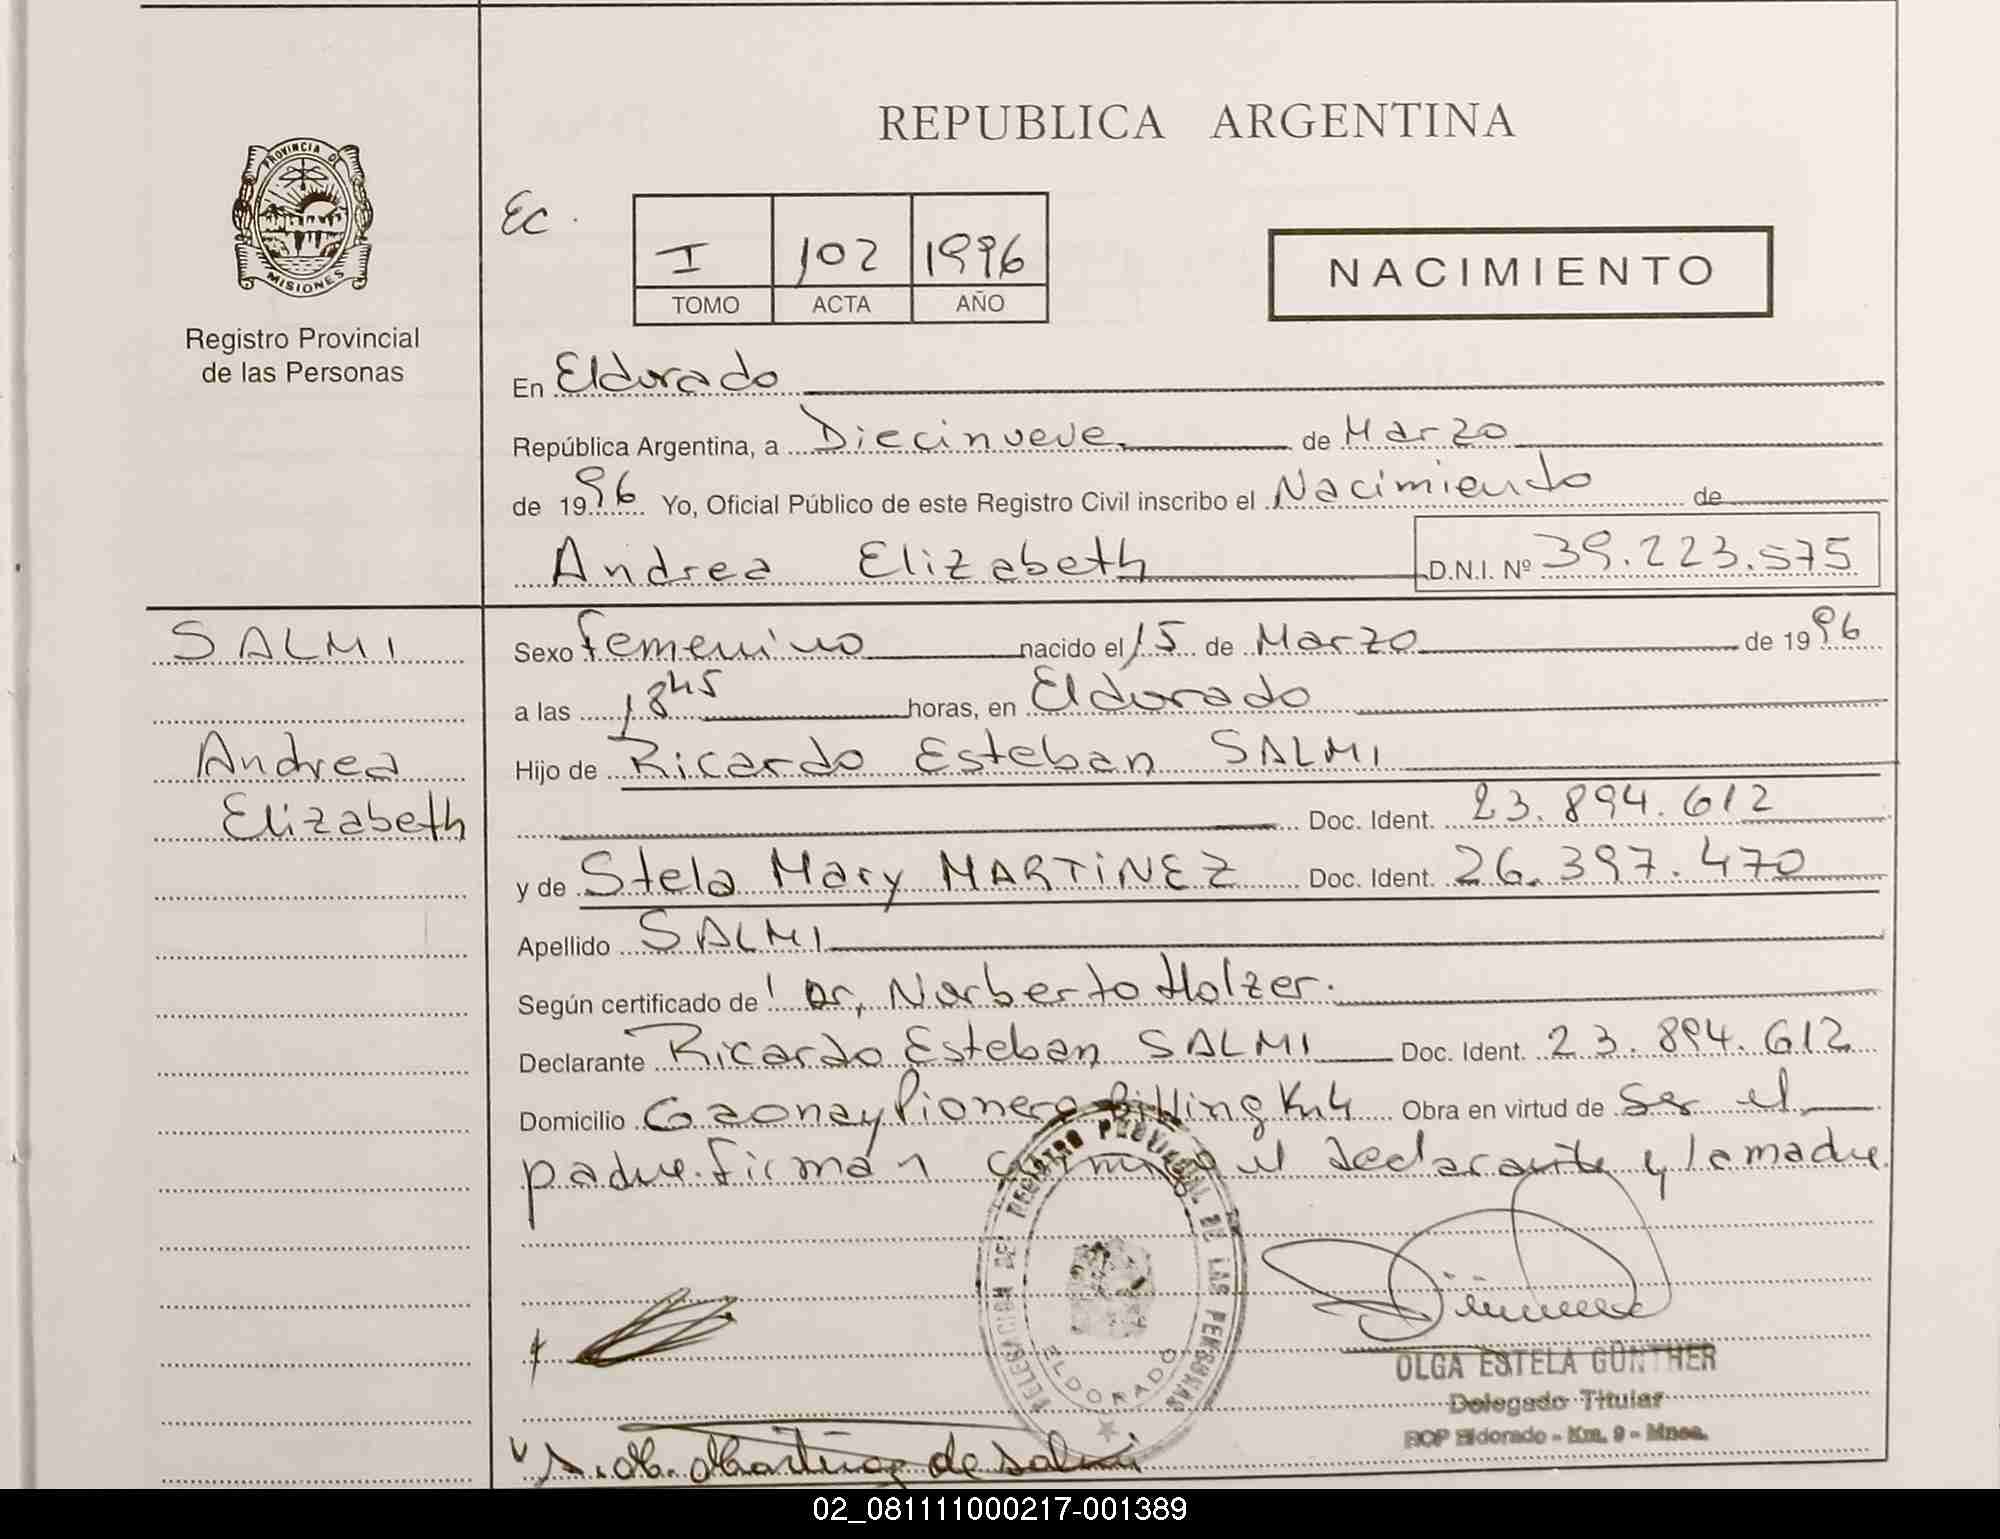 REPUBLICA ARGENTINA
PROVINCIA DE
MISIONES
Registro Provincial
de las Personas
Ec.
I 102 1996
TOMO ACTA AÑO
NACIMIENTO
En Eldorado
República Argentina, a Diecinueve de Marzo
de 1996 Yo, Oficial Público de este Registro Civil inscribo el Nacimiento de
Andrea Elizabeth D.N.I. Nº 39.223.575
SALMI
Andrea
Elizabeth
Sexo Femenino nacido el 15 de Marzo de 1996
a las 18 45 horas, en Eldorado
Hijo de Ricardo Esteban SALMI
Doc. Ident. 23.894.612
y de Stela Mary MARTINEZ Doc. Ident. 26.397.470
Apellido SALMI
Según certificado de Dr. Norberto Holzer.
Declarante Ricardo Esteban SALMI Doc. Ident. 23.894.612
Domicilio Gaona y Pionero Billing Km4 Obra en virtud de ser el
padre. Firman el declarante y la madre.
DELEGACION DE REGISTRO PROVINCIAL DE LAS PERSONAS
ELDORADO
OLGA ESTELA GUNTHER
Delegado Titular
RCP Eldorado - Km. 9 - Mnes.
S. M. Martinez de Salmi
02_081111000217-001389